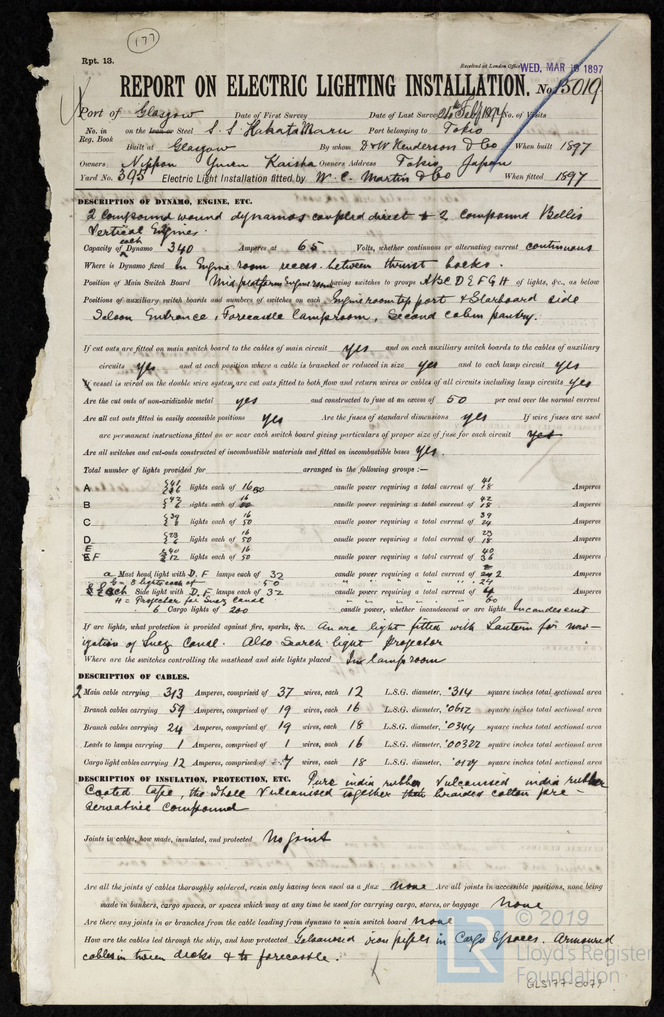 177
Rpt. 13.
Received at London Office WED. MAR 1897
REPORT ON ELECTRIC LIGHTING INSTALLATION. No. 15019
Port of Glasgow Date of First Survey Date of Last Survey Feby 1897 No. of Visits
No. in Reg. Book on the Iron or Steel S.S Hakata Maru Port belonging to Tokio
Built at Glasgow By whom D & W Henderson & Co When built 1897
Owners Nippon Yusen Kaisha Owners Address Tokio, Japan
Yard No. 395 Electric Light Installation fitted by W. C. Martin & Co When fitted 1897
DESCRIPTION OF DYNAMO, ENGINE, ETC.
2 Compound wound dynamos coupled direct to 2 Compound Bellis
Vertical Engines.
Capacity of each Dynamo 340 Amperes at 65 Volts, whether continuous or alternating current continuous
Where is Dynamo fixed In Engine room recess between thrust
Position of Main Switch Board Mid platform Engine room having switches to groups A B C D E F G H of lights, &c., as below
Positions of auxiliary switch boards and numbers of switches on each Engine room top port & Starboard side
Saloon Entrance, Forecastle Lamproom, Second cabin pantry.
If cut outs are fitted on main switch board to the cables of main circuit yes and on each auxiliary switch board to the cables of auxiliary
circuits yes and at each position where a cable is branched or reduced in size yes and to each lamp circuit yes
If vessel is wired on the double wire system, are cut outs fitted to both flow and return wires or cables of all circuits including lamp circuits yes
Are the cut outs of non-oxidizable metal yes and constructed to fuse at an excess of 50 per cent over the normal current
Are all cut outs fitted in easily accessible positions yes Are the fuses of standard dimensions yes If wire fuses are used
are permanent instructions fitted on or near each switch board giving particulars of proper size of fuse for each circuit yes
Are all switches and cut-outs constructed of incombustible materials and fitted on incombustible bases yes.
Total number of lights provided for arranged in the following groups :—
A 41 lights each of 16 50 candle power requiring a total current of 41 18 Amperes
B 42 6 lights each of 16 candle power requiring a total current of 42 18 Amperes
C 39 8 lights each of 16 50 candle power requiring a total current of 39 24 Amperes
D 23 6 lights each of 16 50 candle power requiring a total current of 23 18 Amperes
E F 40 12 lights each of 16 50 candle power requiring a total current of 40 36 Amperes
2 Mast head light with D.F lamps each of 32 candle power requiring a total current of 2 Amperes
lights each of 50 " " " " 24
2 Side light with D.F lamps each of 32 candle power requiring a total current of 4 Amperes
H = Projector for Suez Canal 60
6 Cargo lights of 200 candle power, whether incandescent or arc lights Incandescent
If arc lights, what protection is provided against fire, sparks, &c. An arc light fitted with Lantern for nav-
igation of Suez Canal. Also Search light Projector
Where are the switches controlling the masthead and side lights placed In lamproom
DESCRIPTION OF CABLES.
2 Main cable carrying 313 Amperes, comprised of 37 wires, each 12 L.S.G. diameter, ·314 square inches total sectional area
Branch cables carrying 59 Amperes, comprised of 19 wires, each 16 L.S.G. diameter, ·0612 square inches total sectional area
Branch cables carrying 24 Amperes, comprised of 19 wires, each 18 L.S.G. diameter, ·0344 square inches total sectional area
Leads to lamps carrying 1 Amperes, comprised of 1 wires, each 16 L.S.G. diameter, ·00322 square inches total sectional area
Cargo light cables carrying 12 Amperes, comprised of 7 wires, each 18 L.S.G. diameter, ·0127 square inches total sectional area
DESCRIPTION OF INSULATION, PROTECTION, ETC. Pure india rubber, Vulcanised india rubber
Coated tape, the whole Vulcanised together then braided cotton pre-
servative compound
Joints in cables, how made, insulated, and protected No joint
Are all the joints of cables thoroughly soldered, resin only having been used as a flux none Are all joints in accessible positions, none being
made in bunkers, cargo spaces, or spaces which may at any time be used for carrying cargo, stores, or baggage none
Are there any joints in or branches from the cable leading from dynamo to main switch board none
How are the cables led through the ship, and how protected Galvanised iron pipes in Cargo Spaces. Armoured
cables in tween decks & to forecastle.
© 2019
LR
Lloyd's Register
Foundation
GLS177-0079